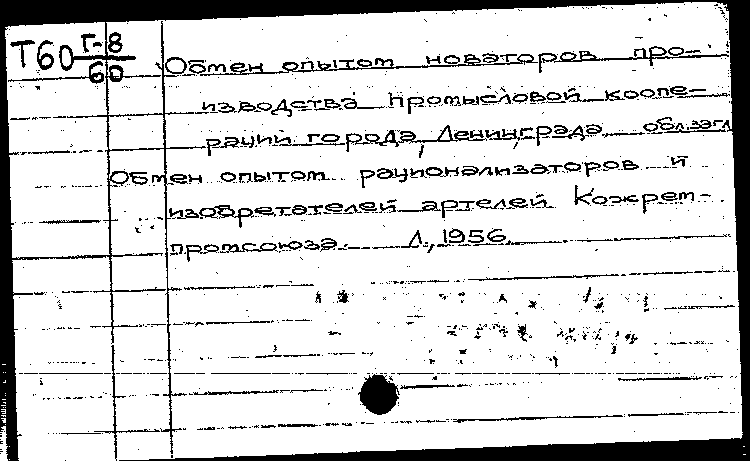 Т60 Г-8/60 Обмен опытом новаторов про-
изводства промысловой коопе-
рации города Ленинграда. обл.загл
Обмен опытом рационализаторов и
изобретателей артелей Кожрем-
промсоюза. Л., 1956.